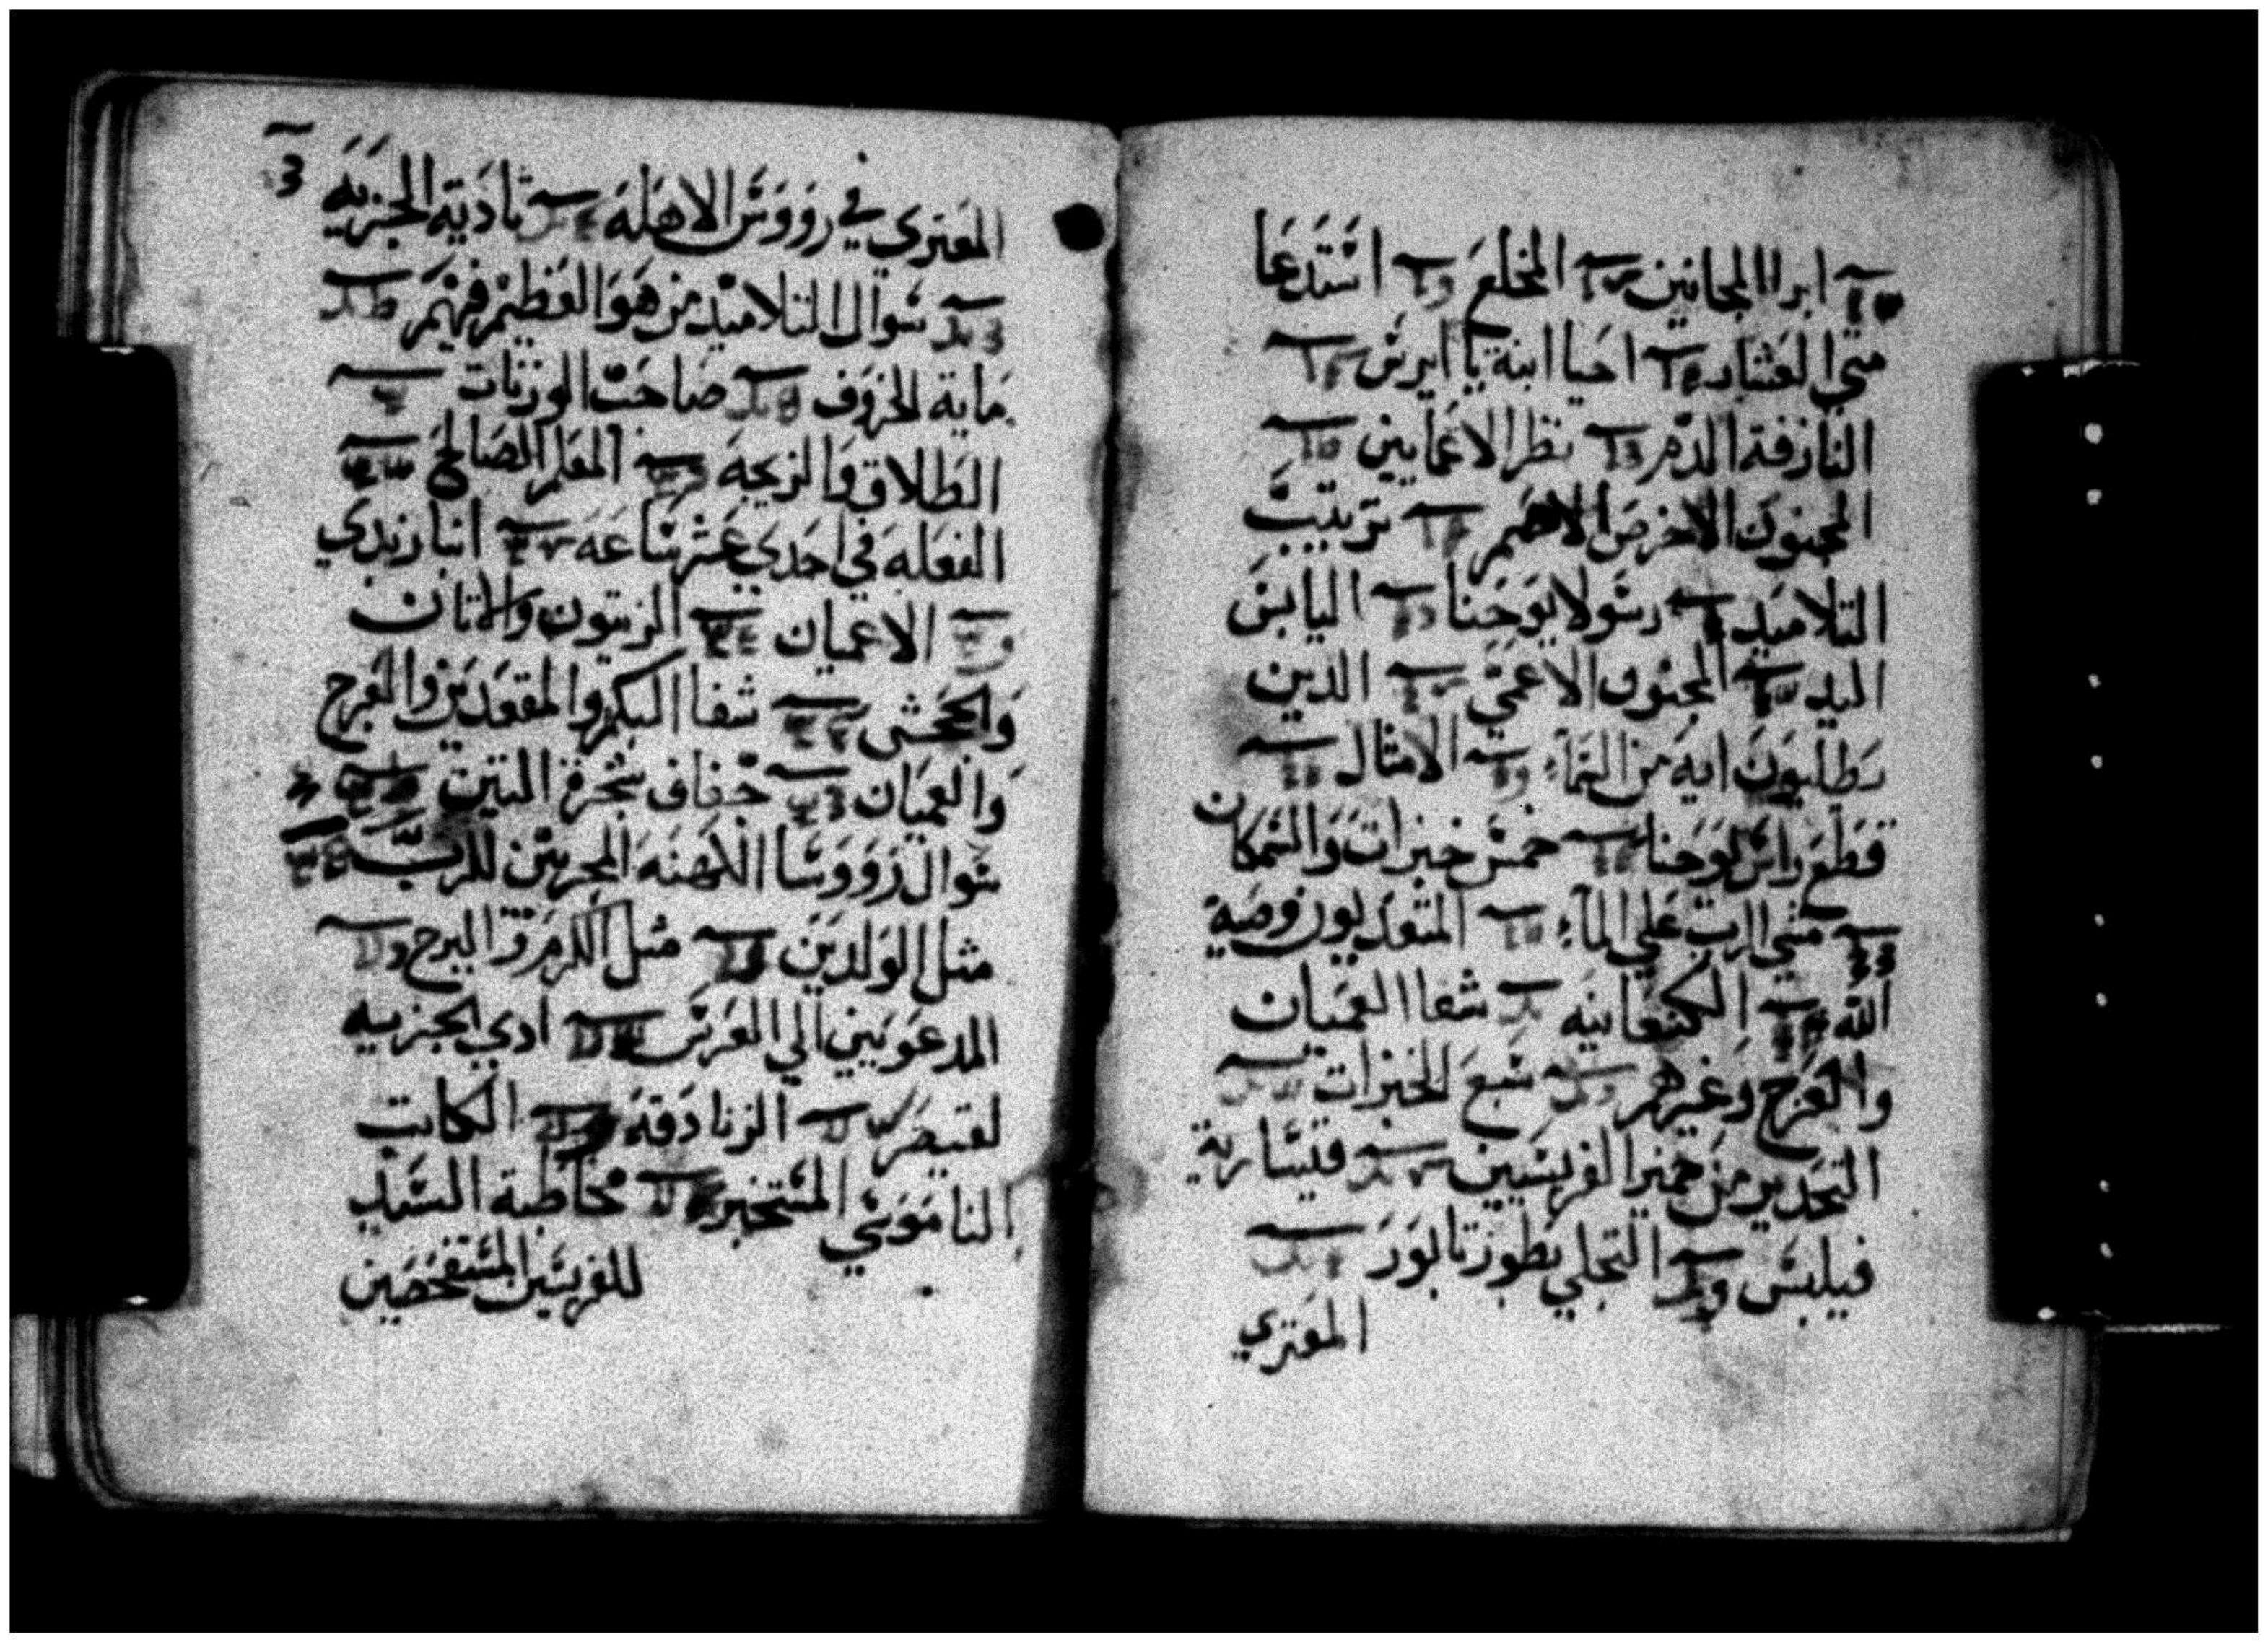 ابرا المجانين المخلع استدعا
متي العشار احيا ابنة يا ايرس
النازفة الدم نظر الاعمايين
المجنون الاخرص الاصم ترتيب
التلاميد رسولا يوحنا اليابس
اليد المجنون الاعمي الدين
يطلبون ايه من السماء الامثال
قطع راس يوحنا خمس خبزات والسمكان
مشي الرب علي الماء المتعديون وصية
الله الكنعانيه شفا العميان
والعرج وغيرهم سبع الخبزات
التحدير من خمير الفريسيين قيسارية
فيلبس التجلي بطور تابور
المعتري
3
المعتري في رووس الاهلة تادية الجزيه
سوال التلاميد من هو العظيم فيهم
ماية الخروف صاحب الوزنات
الطلاق والزيجه المعلم الصالح
الفعله في احدي عشر ساعه ابنا زبدي
الاعميان الزيتون والاتان
والجحش شفا البكم والمقعدين والعرج
والعميان جفاف شجرة التين
سوال رووسا الكهنه المجربين للرب
مثل الولدين مثل الكرم والبرج
المدعويين الي العرس ادي الجزيه
لقيصر الزنادقة الكاتب
الناموسي المستخبر مخاطبة السيد
للفريسين المستفحصين